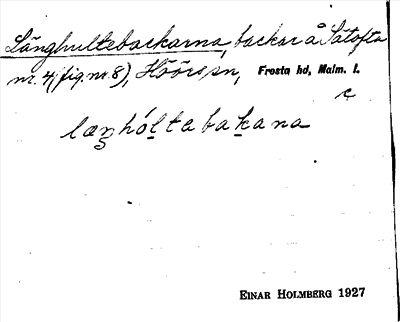 Långhultebackarna, backar å Sätofta
nr. 4, (fig. nr. 8), Höörs sn, Frosta hd, Malm. l.
c
læŋhóltabakana
EINAR HOLMBERG 1927